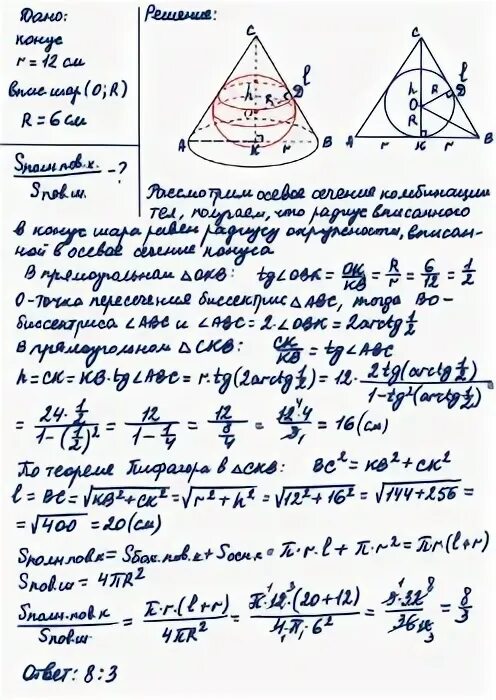 Дано:
конус
r = 12 см
впис. шар (O; R)
R = 6 см
Sполн.пов.к. / Sпов.ш. - ?
Решение:
C
h
R
D
l
O
A
K
r
B
C
l
h
R
D
O
R
A
r
K
r
B
Рассмотрим осевое сечение комбинации
тел, получаем, что радиус вписанного
в конус шара равен радиусу окружности, вписан-
ной в осевое сечение конуса
В прямоугольном △OKB: tg∠OBK = OK/KB = R/r = 6/12 = 1/2
O-точка пересечения биссектрис △ABC, тогда BO-
биссектриса ∠ABC и ∠ABC = 2·∠OBK = 2arctg 1/2
В прямоугольном △CKB: CK/KB = tg∠ABC
h = CK = KB·tg∠ABC = r·tg(2arctg 1/2) = 12· 2tg(arctg 1/2) / 1-tg²(arctg 1/2)
= 24·1/2 / 1-(1/2)² = 12 / 1-1/4 = 12 / 3/4 = 12·4/3 = 16 (см)
По теореме Пифагора в △CKB: BC² = KB² + CK²
l = BC = √KB²+CK² = √r²+h² = √12²+16² = √144+256 =
= √400 = 20 (см)
Sполн.пов.к = Sбок.пов.к + Sосн.к = π·r·l + π·r² = πr(l+r)
Sпов.ш = 4πR²
Sполн.пов.к / Sпов.ш = π·r·(l+r) / 4πR² = π·12·(20+12) / 4·π·6² = 3·32/36 = 8/3
Ответ: 8:3